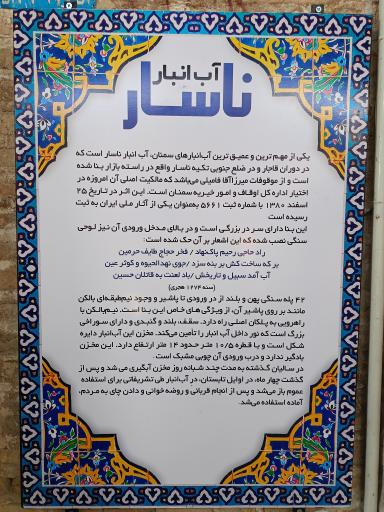 آب انبار
ناسار
یکی از مهم ترین و عمیق ترین آب‌انبارهای سمنان، آب انبار ناسار است که
در دوران قاجار و در ضلع جنوبی تکیه ناسار واقع در راسته بازار بنا شده
است و از موقوفات میرزاآقا فامیلی می‌باشد که مالکیت اصلی آن امروزه در
اختیار اداره کل اوقاف و امور خیریه سمنان است. این اثر در تاریخ ۲۵
اسفند ۱۳۸۰ با شماره ثبت ۵۶۶۱ به‌عنوان یکی از آثار ملی ایران به ثبت
رسیده است
این بنا دارای سر در بزرگی است و در بالای مدخل ورودی آن نیز لوحی
سنگی نصب شده که این اشعار بر آن حک شده است:
راد حاجی رحیم پاکنهاد / فخر حجاج طایف حرمین
بر که ساخت کش بر بنه سزد /جوی نهدالحیوه و کوثر عین
آب آمد سبیل و تاریخش /باد لعنت به قاتلان حسین
(سنه ۱۲۷۴ هجری)
۴۲ پله سنگی پهن و بلند از در ورودی تا پاشیر و وجود نیم‌طبقه‌ای بالکن
مانند بر روی پاشیر آن، از ویژگی های خاص این بنا است. نیم‌بالکن با
راهرویی به پلکان اصلی راه دارد. سقف، بلند و گنبدی و دارای سوراخی
بزرگ است که نور داخل آب انبار را تأمین می‌کند. مخزن این آب‌انبار دایره
شکل است و با قطره ۱۰/۵ متر حدود ۱۴ متر ارتفاع دارد. این مخزن
بادگیر ندارد و درب ورودی آن چوبی مشبک است.
در سالیان گذشته به مدت چند شبانه روز مخزن آبگیری می شد و پس از
گذشت چهار ماه، در اوایل تابستان، در آب‌انبار طی تشریفاتی برای استفاده
عموم باز می‌شد و پس از انجام قربانی و روضه خوانی و دادن چای به مردم،
آماده استفاده می‌شد.